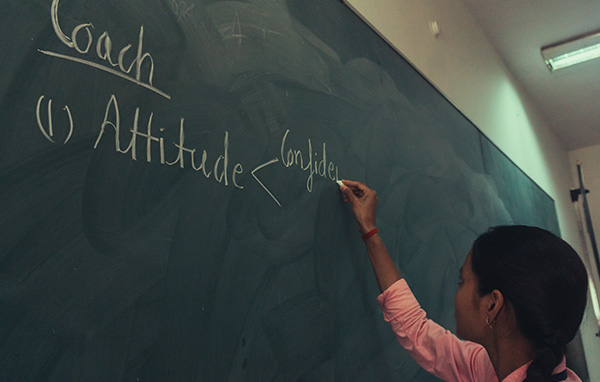 Coach
(1) Attitude < Confide